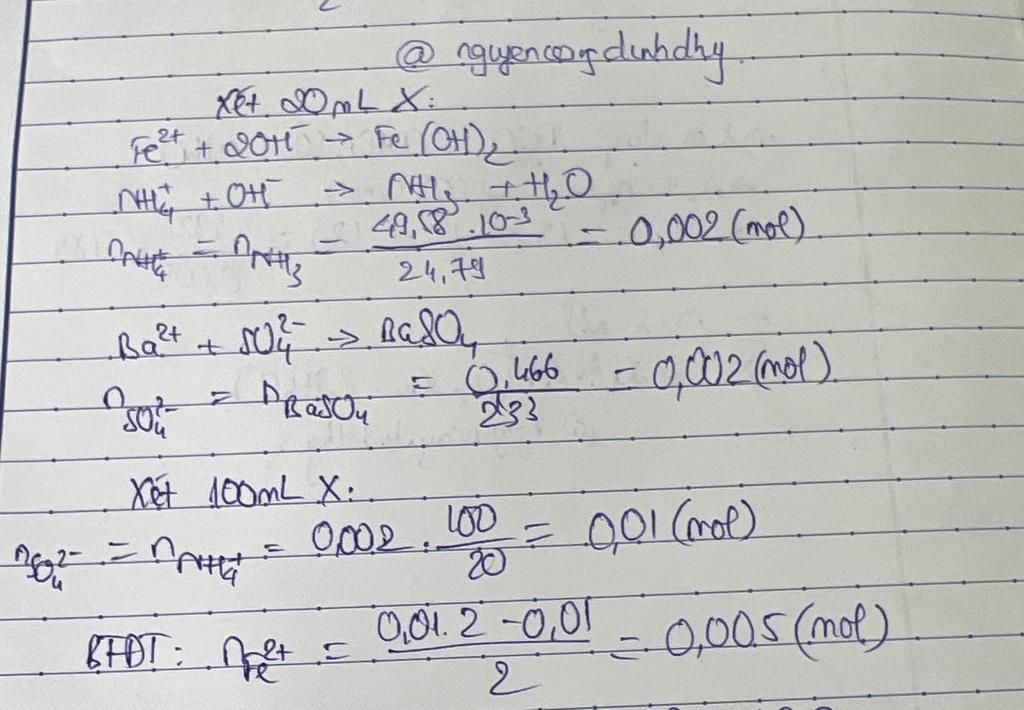 @ nguyencongdinhdhy.
Xét 20mL X:
Fe²⁺ + 2OH⁻ → Fe(OH)₂
NH₄⁺ + OH⁻ → NH₃ + H₂O
n_NH₄⁺ = n_NH₃ = 49,58 . 10⁻³ / 24,79 = 0,002 (mol)
Ba²⁺ + SO₄²⁻ → BaSO₄
n_SO₄²⁻ = n_BaSO₄ = 0,466 / 233 = 0,002 (mol)
Xét 100mL X:
n_SO₄²⁻ = n_NH₄⁺ = 0,002 . 100 / 20 = 0,01 (mol)
BTĐT: n_Fe²⁺ = (0,01.2 - 0,01) / 2 = 0,005 (mol)